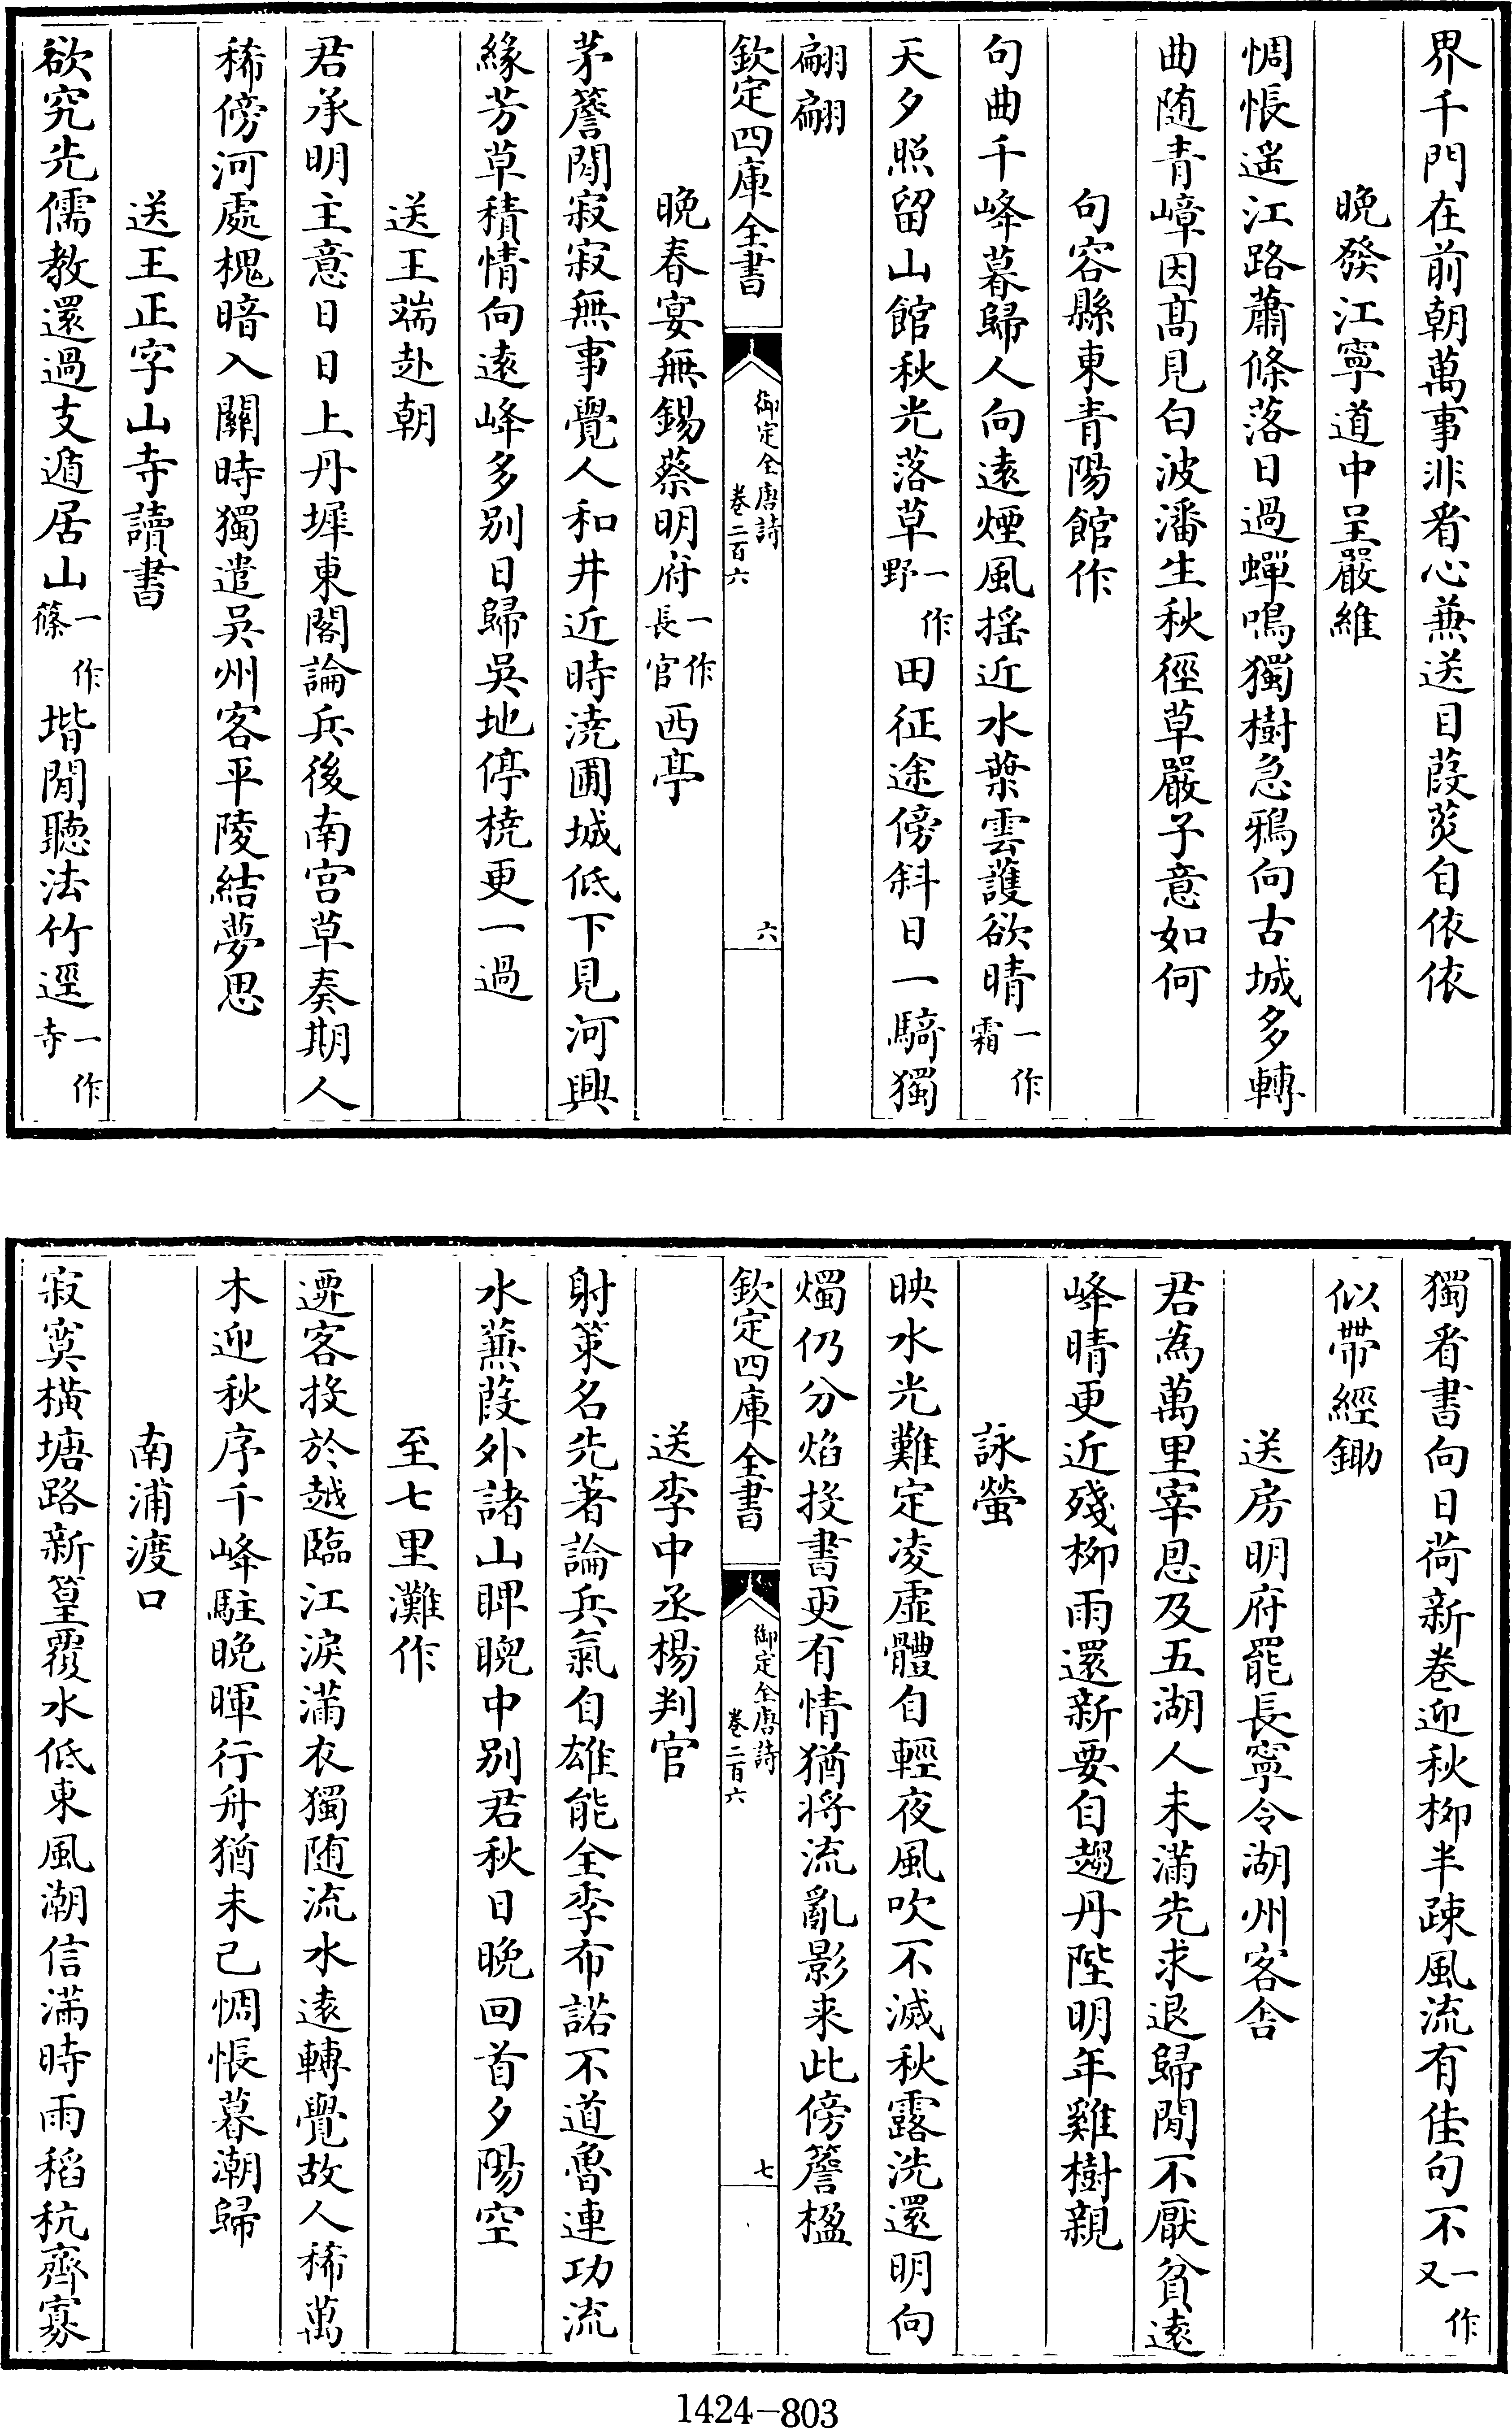 界千門在前朝萬事非看心兼送目葭菼自依依
晚發江寧道中呈嚴維
惆悵遥江路蕭條落日過蟬鳴獨樹急鴉向古城多轉
曲随青嶂因髙見白波潘生秋徑草嚴子意如何
句容縣東青陽館作
句曲千峰暮歸人向逺煙風揺近水葉雲護欲晴一作霜
天夕照留山館秋光落草一作野田征途傍斜日一騎獨
翩翩
欽定四庫全書 御定全唐詩 卷二百六 六
晚春宴無錫蔡明府一作長官西亭
茅簷閒寂寂無事覺人和井近時澆圃城低下見河興
緣芳草積情向逺峰多别日歸吳地停橈更一過
送王端赴朝
君承明主意日日上丹墀東閣論兵後南宫草奏期人
稀傍河處槐暗入關時獨遣吳州客平陵結夢思
送王正字山寺讀書
欲究先儒教還過支遁居山一作篠堦閒聽法竹逕一作寺
獨看書向日荷新卷迎秋柳半疎風流有佳句不一作又
似帶經鋤
送房明府罷長寧令湖州客舍
君為萬里宰恩及五湖人未滿先求退歸閒不厭貧逺
峰晴更近殘柳雨還新要自趨丹陛明年雞樹親
詠螢
映水光難定凌虚體自輕夜風吹不滅秋露洗還明向
燭仍分焰投書更有情猶将流亂影来此傍簷楹
欽定四庫全書 御定全唐詩 卷二百六 七
送李中丞楊判官
射策名先著論兵氣自雄能全季布諾不道魯連功流
水蒹葭外諸山睥睨中别君秋日晚回首夕陽空
至七里灘作
遷客投於越臨江淚滿衣獨随流水逺轉覺故人稀萬
木迎秋序千峰駐晚暉行舟猶未已惆悵暮潮歸
南浦渡口
寂寞横塘路新篁覆水低東風潮信滿時雨稻秔齊寡
1424-803